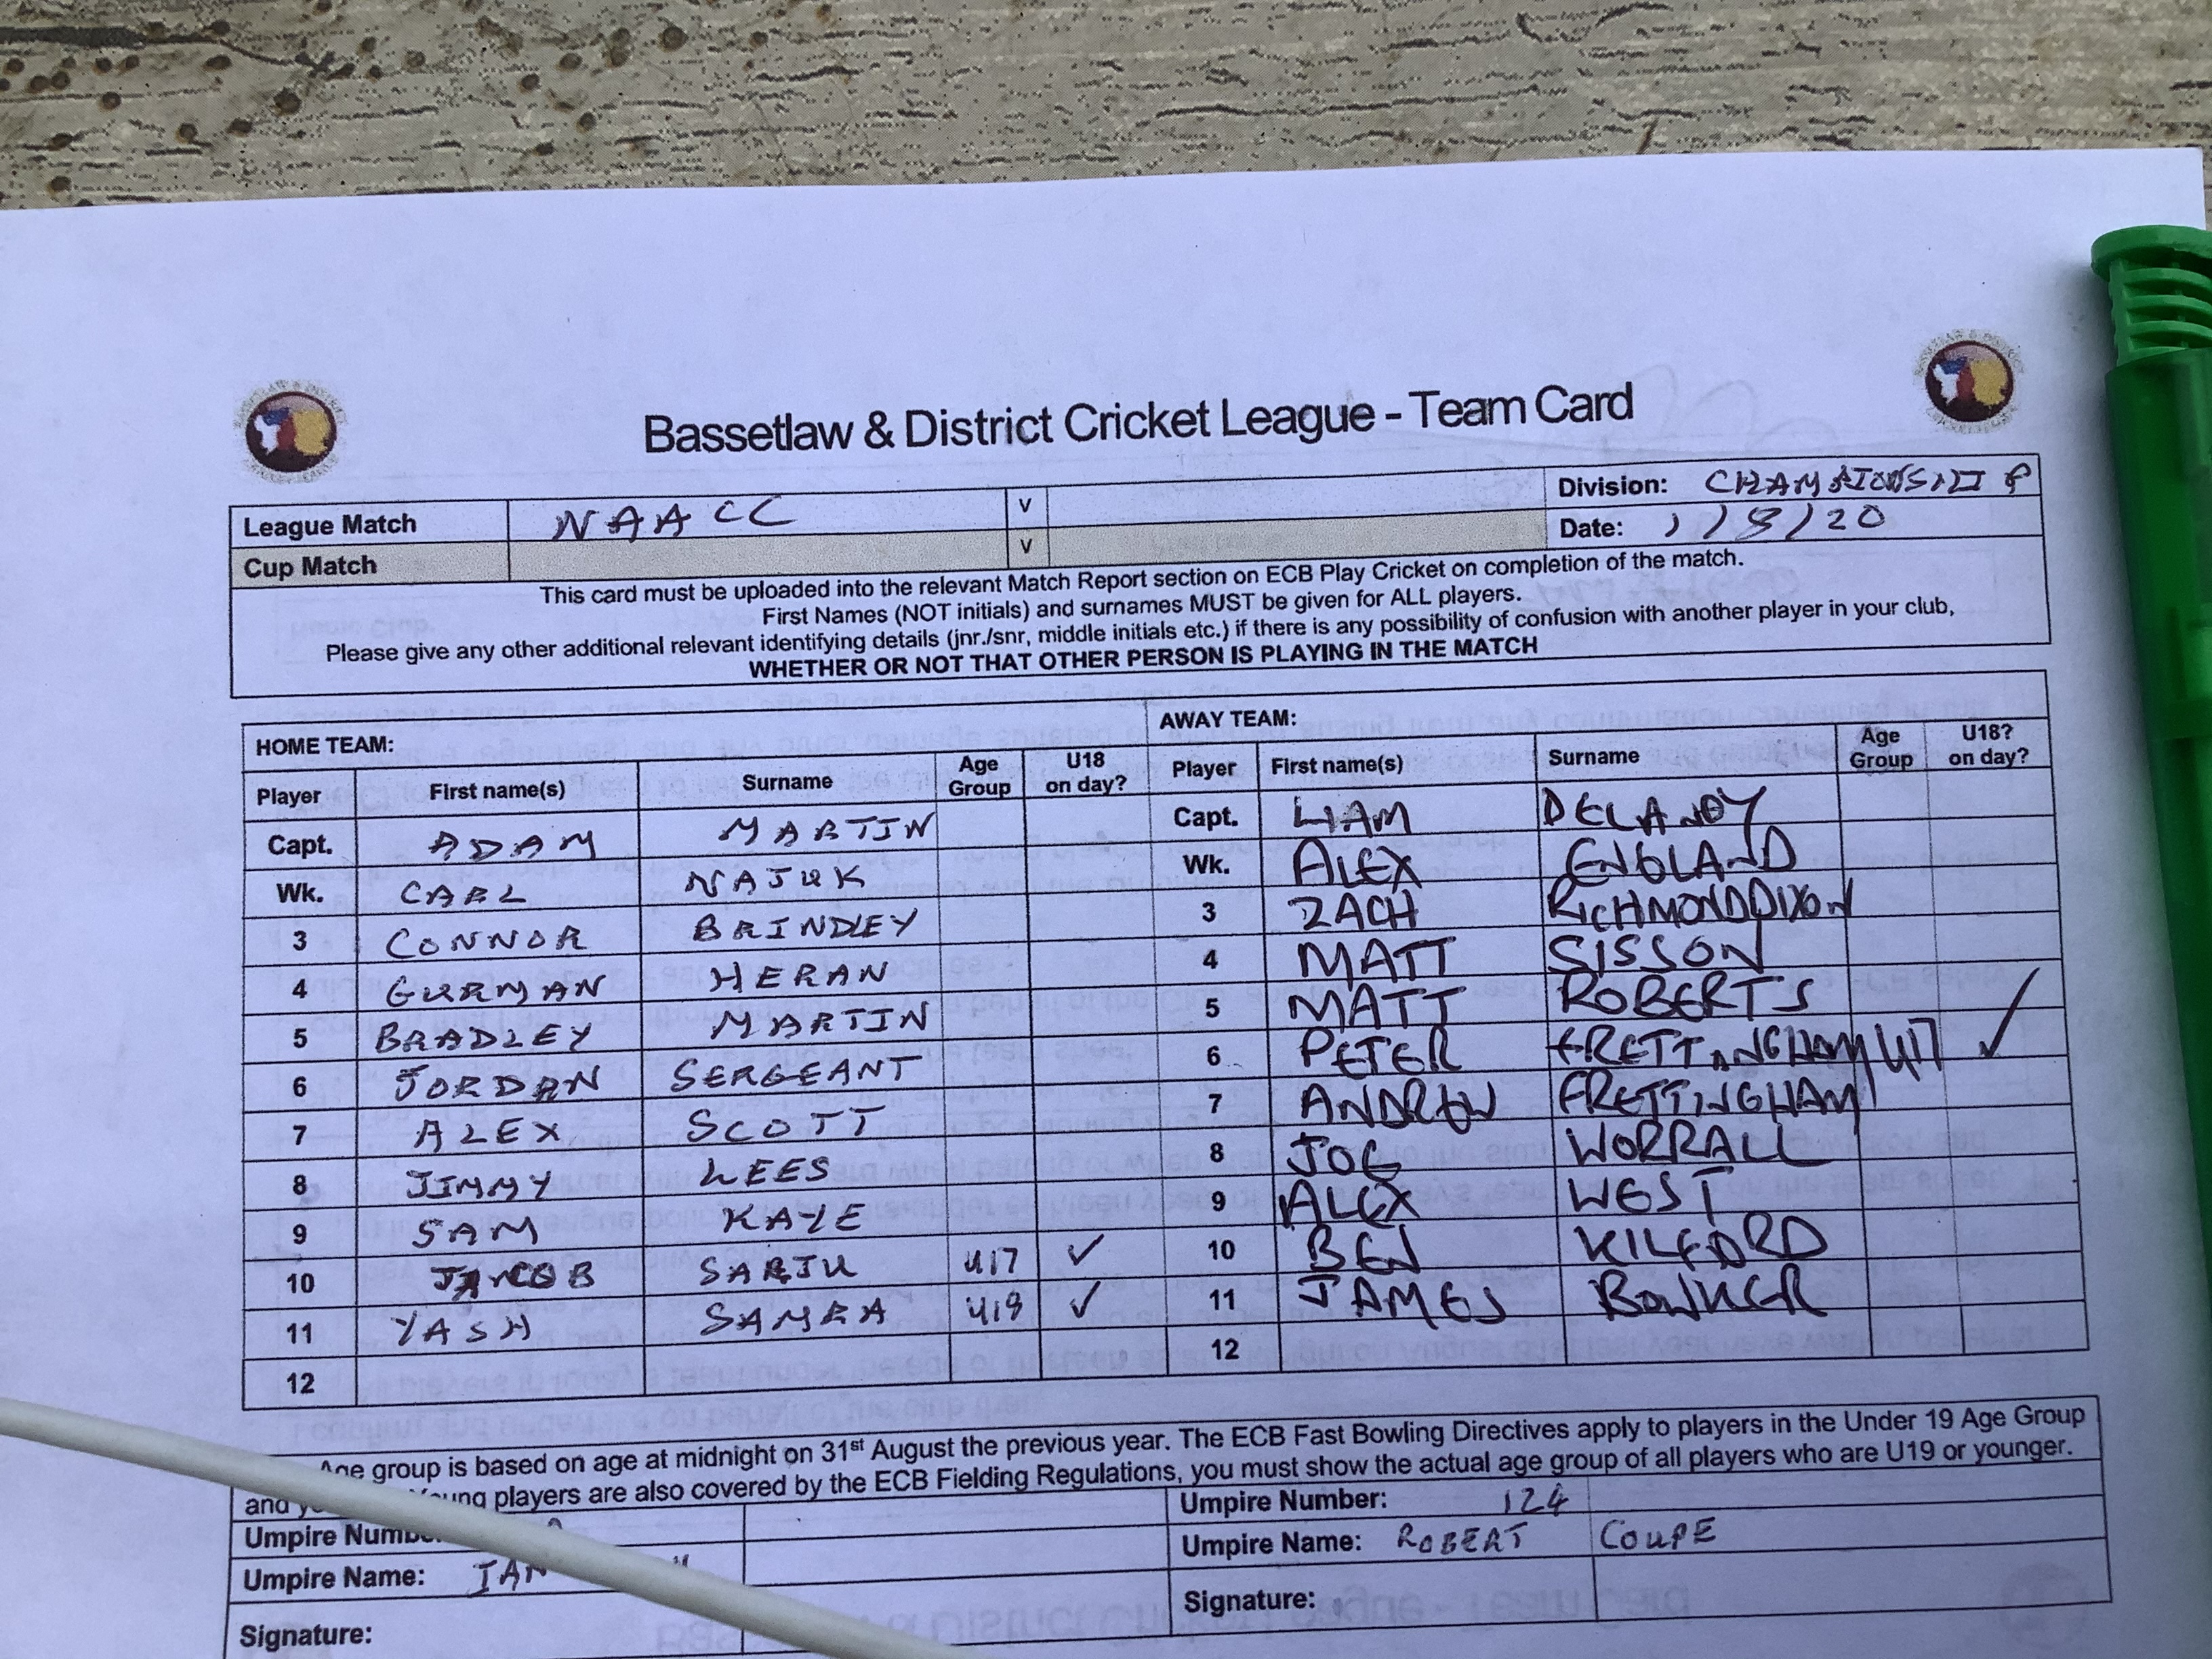 Bassetlaw & District Cricket League - Team Card
League Match NAACC v Division: CHAMPIONSHIP
Cup Match v Date: 1/8/20
This card must be uploaded into the relevant Match Report section on ECB Play Cricket on completion of the match.
First Names (NOT initials) and surnames MUST be given for ALL players.
Please give any other additional relevant identifying details (jnr./snr, middle initials etc.) if there is any possibility of confusion with another player in your club,
WHETHER OR NOT THAT OTHER PERSON IS PLAYING IN THE MATCH
HOME TEAM: AWAY TEAM:
Player First name(s) Surname Age Group U18 on day? Player First name(s) Surname Age Group U18? on day?
Capt. ADAM MARTIN Capt. LIAM DELANEY
Wk. CARL NAJUK Wk. ALEX ENGLAND
3 CONNOR BRINDLEY 3 ZACH RICHMONDDIXON
4 GURMAN HERAN 4 MATT SISSON
5 BRADLEY MARTIN 5 MATT ROBERTS
6 JORDAN SERGEANT 6 PETER FRETTINGHAM U17 ✓
7 ALEX SCOTT 7 ANDREW FRETTINGHAM
8 JIMMY LEES 8 JOE WORRALL
9 SAM KAYE 9 ALEX WEST
10 JACOB SARJU U17 ✓ 10 BEN KILFORD
11 YASH SAMRA U19 ✓ 11 JAMES BOWKER
12 12
Age group is based on age at midnight on 31st August the previous year. The ECB Fast Bowling Directives apply to players in the Under 19 Age Group
and players are also covered by the ECB Fielding Regulations, you must show the actual age group of all players who are U19 or younger.
Umpire Number: 124
Umpire Name: IAN Umpire Name: ROBERT COUPE
Signature: Signature: